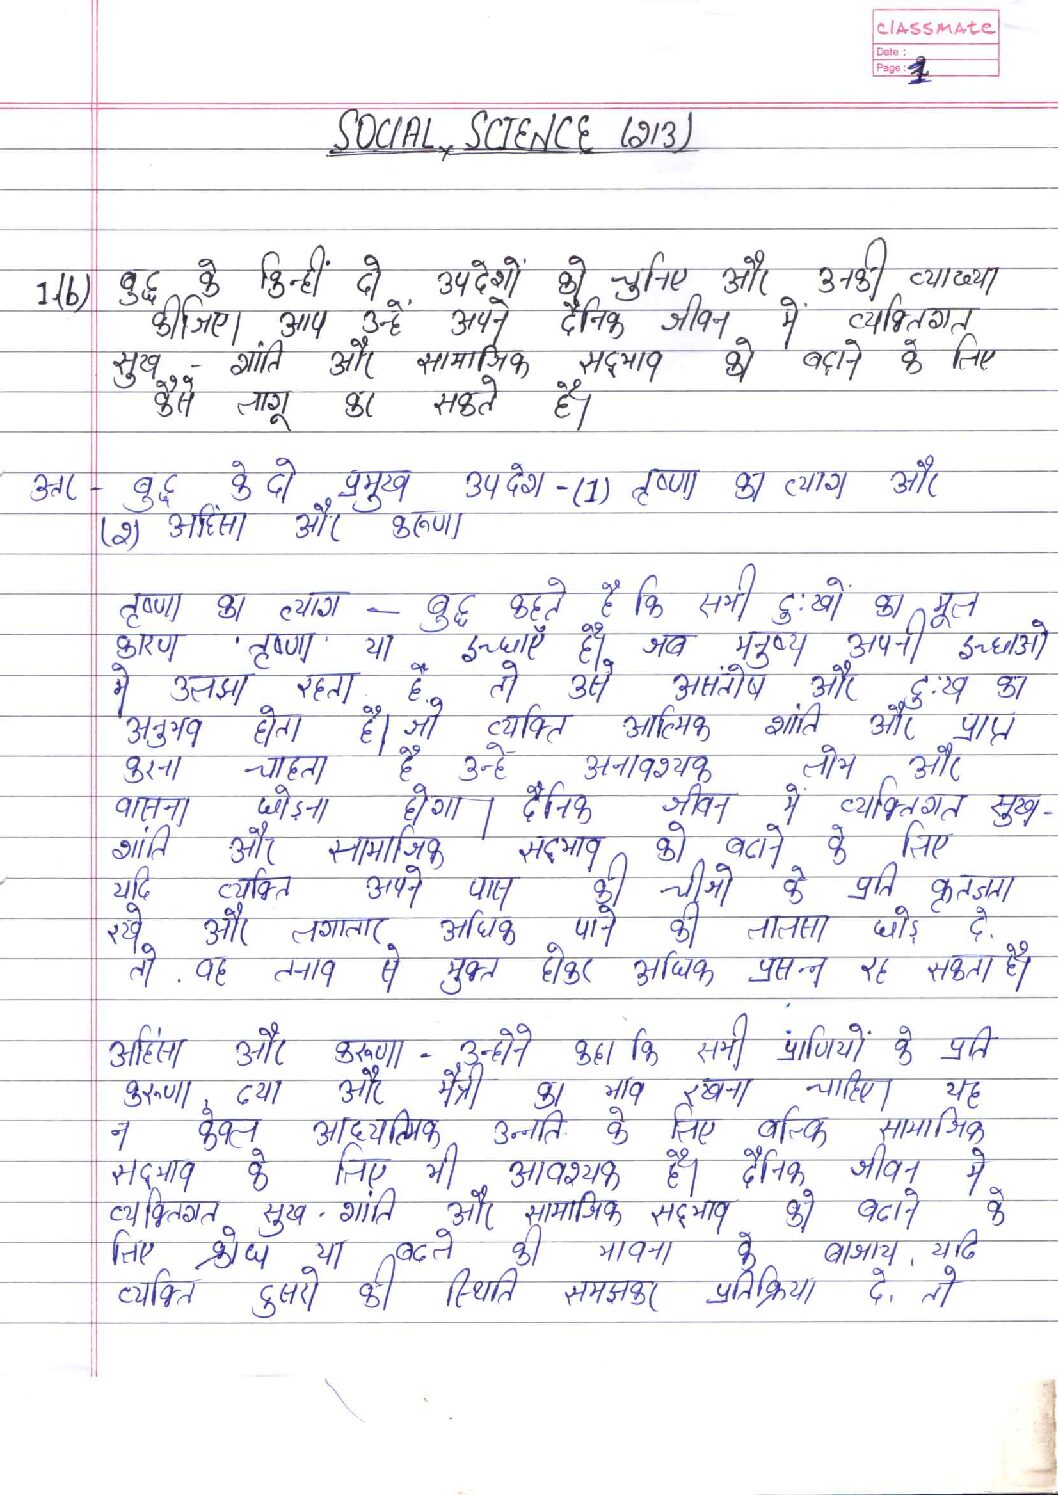 CLASSMATE
Date :
Page : 1
SOCIAL SCIENCE (213)
1.(b) बुद्ध के किन्हीं दो उपदेशों को चुनिए और उनकी व्याख्या
कीजिए। आप उन्हें अपने दैनिक जीवन में व्यक्तिगत
सुख - शांति और सामाजिक सद्भाव को बढ़ाने के लिए
कैसे लागू कर सकते हैं।
उत्तर - बुद्ध के दो प्रमुख उपदेश - (1) तृष्णा का त्याग और
(2) अहिंसा और करूणा
तृष्णा का त्याग — बुद्ध कहते हैं कि सभी दु:खों का मूल
कारण 'तृष्णा' या इच्छाएँ हैं। जब मनुष्य अपनी इच्छाओ
मे उलझा रहता है, तो उसे असंतोष और दु:ख का
अनुभव होता है। जो व्यक्ति आत्मिक शांति और प्राप्त
करना चाहता है उन्हें अनावश्यक लोभ और
वासना छोड़ना होगा। दैनिक जीवन में व्यक्तिगत सुख-
शांति और सामाजिक सद्भाव को बढाने के लिए
यदि व्यक्ति अपने पास की चीजो के प्रति कृतज्ञता
रखे और लगातार अधिक पाने की लालसा छोड़ दे,
तो वह तनाव से मुक्त होकर अधिक प्रसन्न रह सकता है।
अहिंसा और करूणा - उन्होने कहा कि सभी प्राणियों के प्रति
करूणा, दया और मैत्री का भाव रखना चाहिए। यह
न केवल आध्यत्मिक उन्नति के लिए बल्कि सामाजिक
सद्भाव के लिए भी आवश्यक है। दैनिक जीवन मे
व्यक्तिगत सुख - शांति और सामाजिक सद्भाव को बढाने के
लिए क्रोध या बदले की भावना के बाजाय, यदि
व्यक्ति दुसरो की स्थिति समझकर प्रतिक्रिया दे, तो